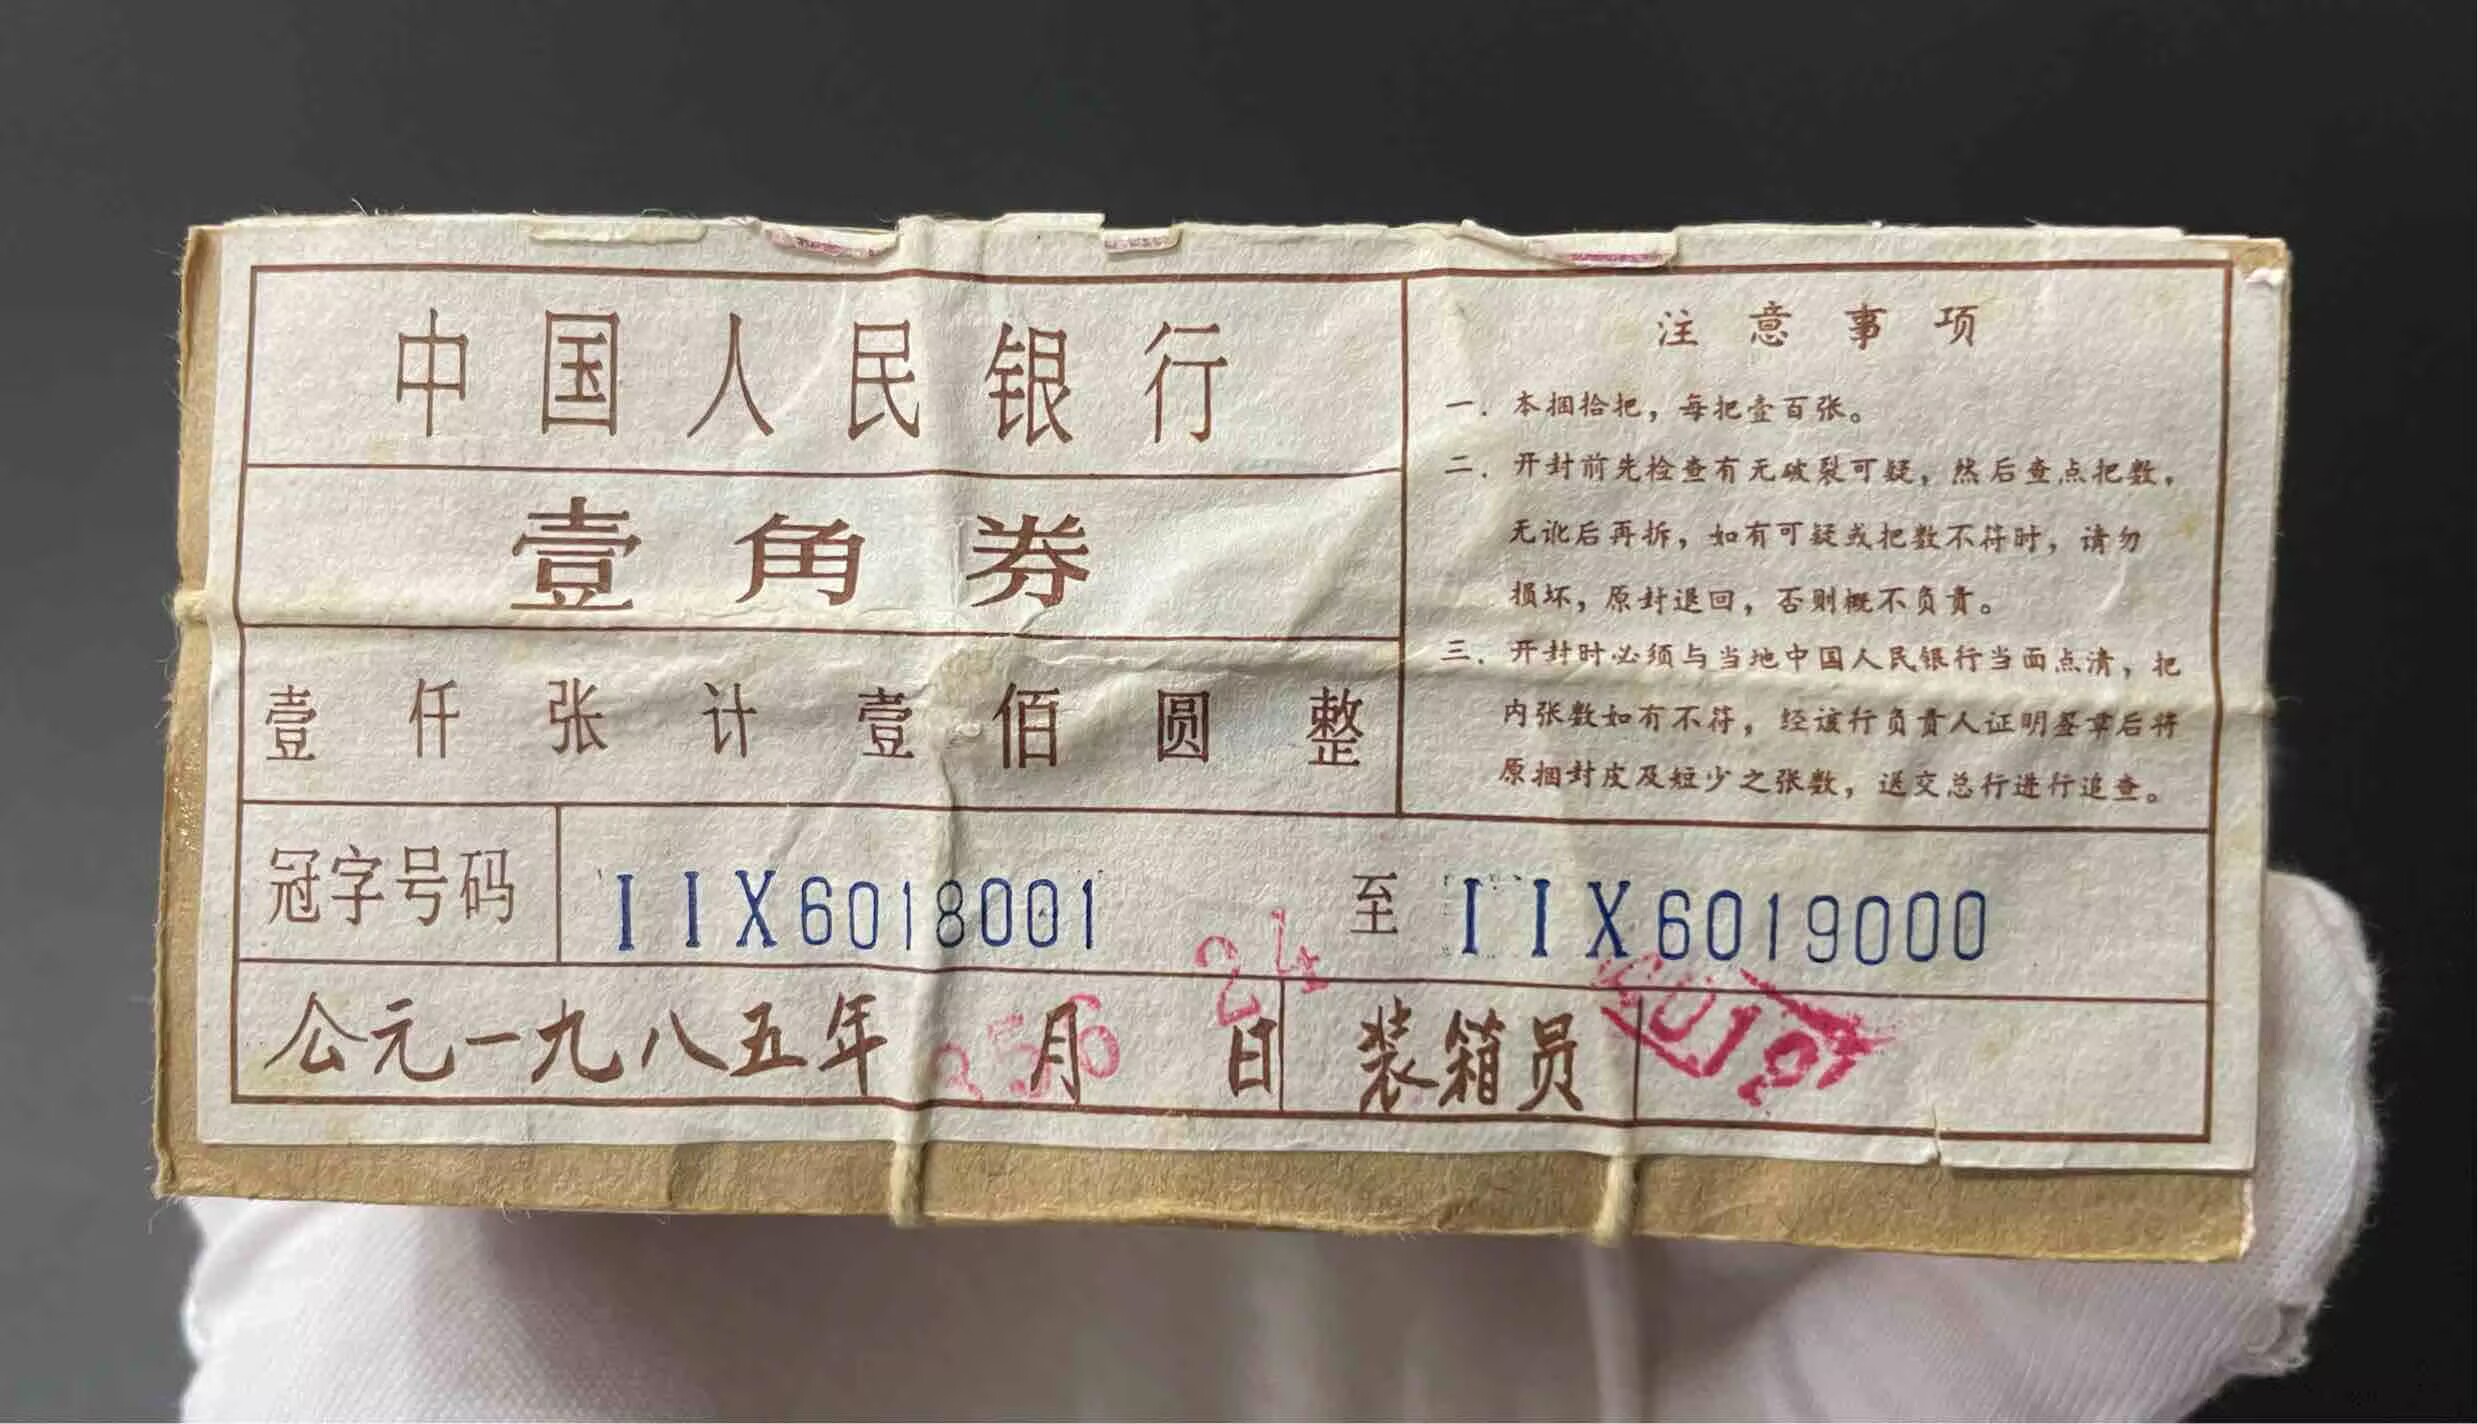 中国人民银行
壹角券
壹仟张计壹佰圆整
注意事项
一．本捆拾把，每把壹百张。
二．开封前先检查有无破裂可疑，然后查点把数，
无讹后再拆，如有可疑或把数不符时，请勿
损坏，原封退回，否则概不负责。
三．开封时必须与当地中国人民银行当面点清，把
内张数如有不符，经该行负责人证明签章后将
原捆封皮及短少之张数，送交总行进行追查。
冠字号码 IIX6018001 至 IIX6019000
公元一九八五年 月 日 装箱员
856
24